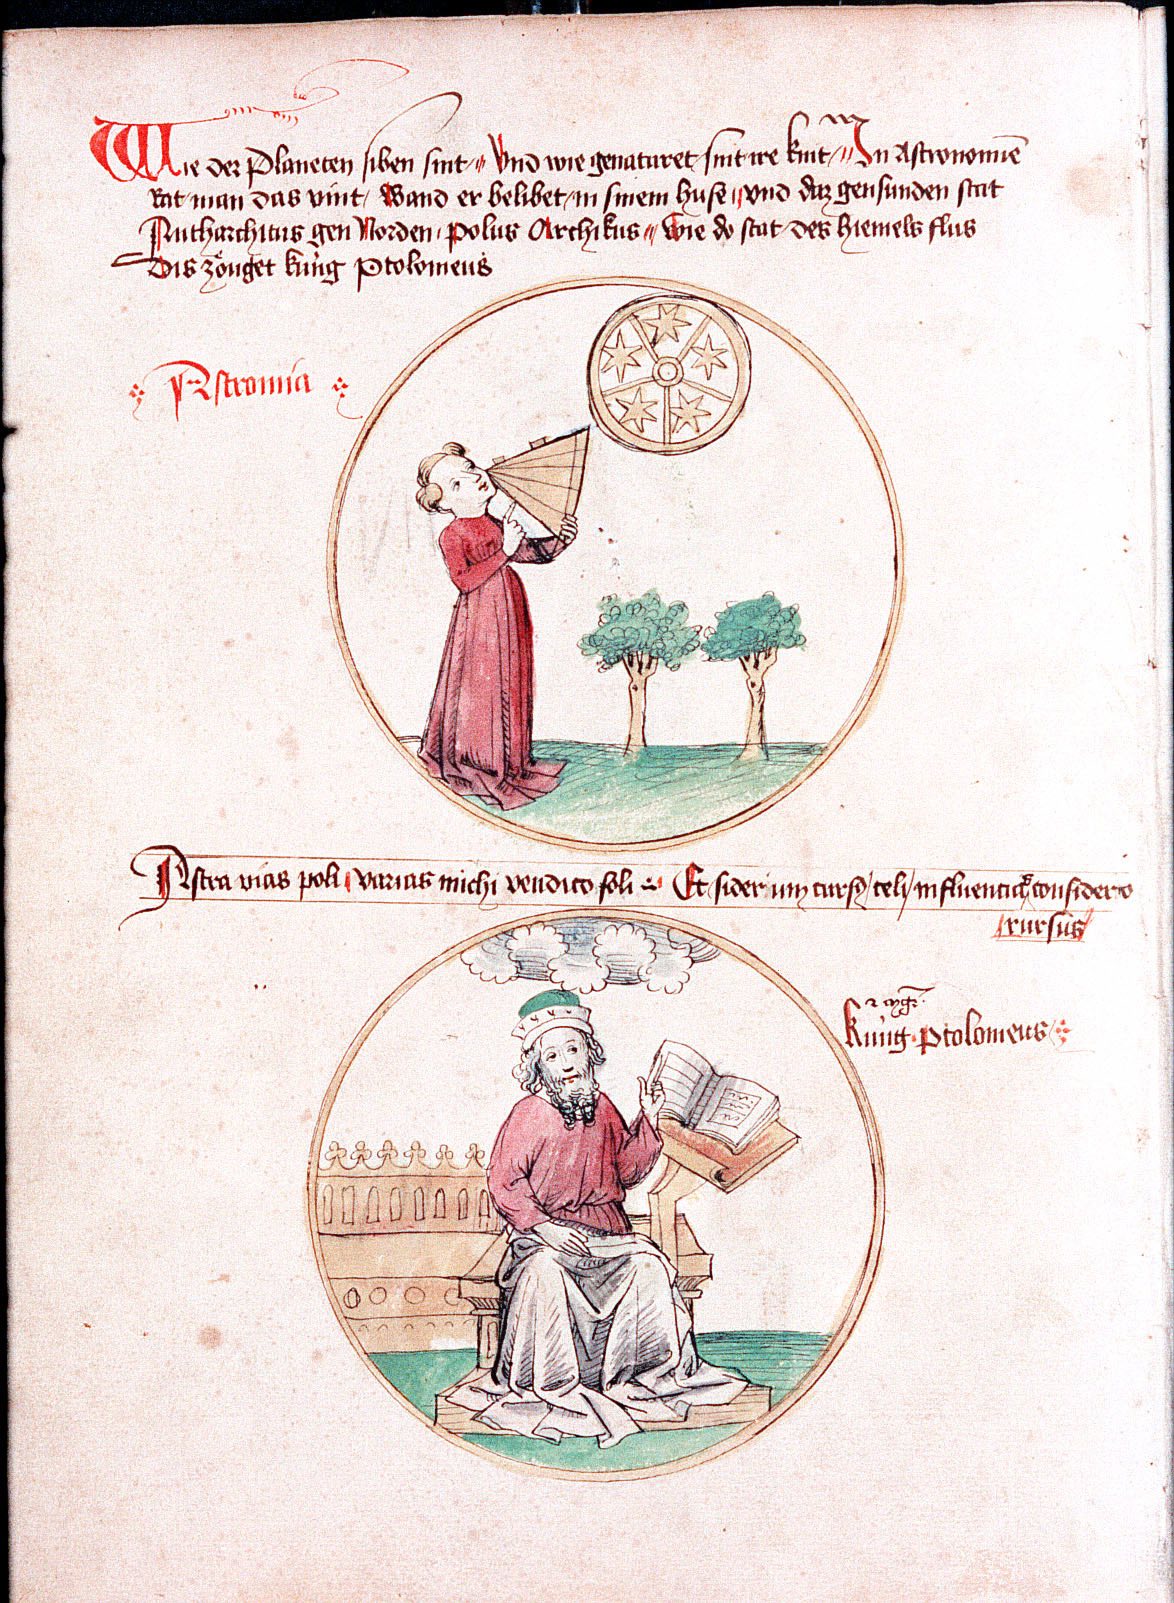 Wie der Planeten siben sint Vnd wie genaturet sint ire kint In Astronomie
Rat man das vint Wand er belibet in sinem huse vnd daz gen sunden stat
Antharchicus gen Norden polus Archikus wie do stat des hiemels flus
Dis zöuget küng Ptolomeus
Astromia
Astra vias poli varias michi vendico soli Et siderum cursus celi influencia considero
rursus
küng ptolomeus